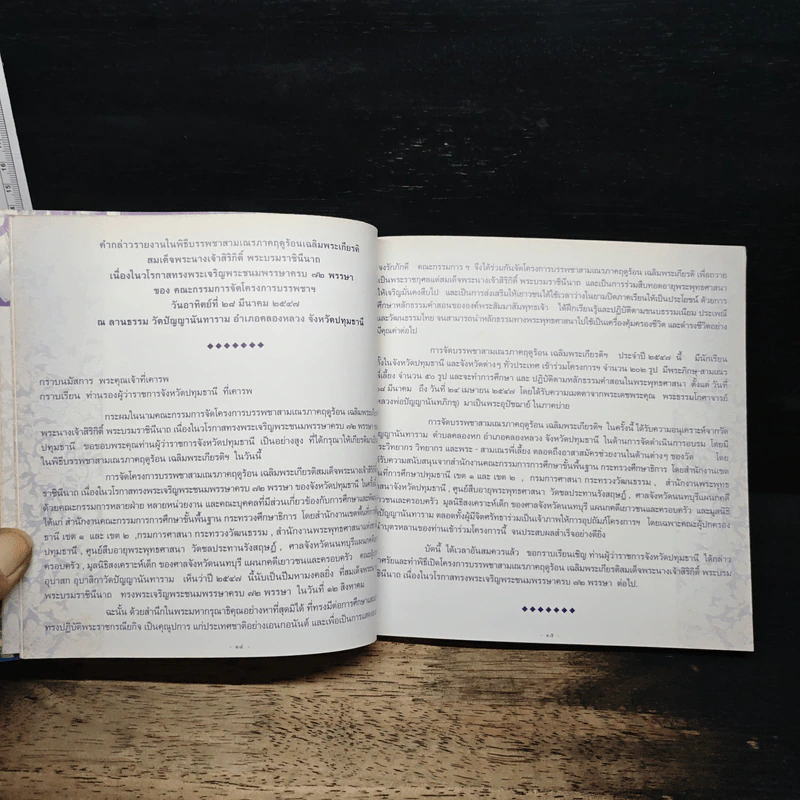 คำกล่าวรายงานในพิธีบรรพชาสามเณรภาคฤดูร้อนเฉลิมพระเกียรติ
สมเด็จพระนางเจ้าสิริกิติ์ พระบรมราชินีนาถ
เนื่องในวโรกาสทรงพระเจริญพระชนมพรรษาครบ ๗๒ พรรษา
ของ คณะกรรมการจัดโครงการบรรพชาฯ
วันอาทิตย์ที่ ๒๘ มีนาคม ๒๕๔๗
ณ ลานธรรม วัดปัญญานันทาราม อำเภอคลองหลวง จังหวัดปทุมธานี
กราบนมัสการ พระคุณเจ้าที่เคารพ
กราบเรียน ท่านรองผู้ว่าราชการจังหวัดปทุมธานี ที่เคารพ
กระผมในนามคณะกรรมการจัดโครงการบรรพชาสามเณรภาคฤดูร้อน เฉลิมพระเกียรติ
พระนางเจ้าสิริกิติ์ พระบรมราชินีนาถ เนื่องในวโรกาสทรงพระเจริญพระชนมพรรษาครบ ๗๒ พรรษา
ปทุมธานี ขอขอบพระคุณท่านผู้ว่าราชการจังหวัดปทุมธานี เป็นอย่างสูง ที่ได้กรุณาให้เกียรติมาเป็น
ในพิธีบรรพชาสามเณรภาคฤดูร้อน เฉลิมพระเกียรติฯ ในวันนี้
การจัดโครงการบรรพชาสามเณรภาคฤดูร้อน เฉลิมพระเกียรติสมเด็จพระนางเจ้าสิริกิติ์
ราชินีนาถ เนื่องในวโรกาสทรงพระเจริญพระชนมพรรษาครบ ๗๒ พรรษา ของจังหวัดปทุมธานี ในครั้งนี้
ด้วยคณะกรรมการหลายฝ่าย หลายหน่วยงาน และคณะบุคคลที่มีส่วนเกี่ยวข้องกับการศึกษาและพัฒนา
ได้แก่ สำนักงานคณะกรรมการการศึกษาขั้นพื้นฐาน กระทรวงศึกษาธิการ โดยสำนักงานเขตพื้นที่การ
ธานี เขต ๑ และ เขต ๒ ,กรมการศาสนา กระทรวงวัฒนธรรม , สำนักงานพระพุทธศาสนา
ปทุมธานี , ศูนย์สืบอายุพระพุทธศาสนา วัดชลประทานรังสฤษฎ์ , ศาลจังหวัดนนทบุรีแผนก
ครอบครัว , มูลนิธิสงเคราะห์เด็ก ของศาลจังหวัดนนทบุรี แผนกคดีเยาวชนและครอบครัว คณะผู้
อุบาสก อุบาสิกาวัดปัญญานันทาราม เห็นว่าปี ๒๕๔๗ นี้นับเป็นปีมหามงคลยิ่ง ที่สมเด็จพระ
พระบรมราชินีนาถ ทรงพระเจริญพระชนมพรรษาครบ ๗๒ พรรษา ในวันที่ ๑๒ สิงหาคม
ฉะนั้น ด้วยสำนึกในพระมหากรุณาธิคุณอย่างหาที่สุดมิได้ ที่ทรงมีต่อการศึกษา
ทรงปฏิบัติพระราชกรณียกิจ เป็นคุณูปการ แก่ประเทศชาติอย่างเอนกอนันต์ และเพื่อเป็นการแสดง
- ๑๔ -
จงรักภักดี คณะกรรมการฯ จึงได้ร่วมกันจัดโครงการบรรพชาสามเณรภาคฤดูร้อน เฉลิมพระเกียรติ เพื่อถวาย
เป็นพระราชกุศลแด่สมเด็จพระนางเจ้าสิริกิติ์ พระบรมราชินีนาถ และเป็นการร่วมสืบทอดอายุพระพุทธศาสนา
ให้เจริญมั่นคงสืบไป และเป็นการส่งเสริมให้เยาวชนได้ใช้เวลาว่างในยามปิดภาคเรียนให้เป็นประโยชน์ ด้วยการ
ศึกษาหลักธรรมคำสอนขององค์พระสัมมาสัมพุทธเจ้า ได้ฝึกเรียนรู้และปฏิบัติตามขนบธรรมเนียม ประเพณี
และวัฒนธรรมไทย จนสามารถนำหลักธรรมทางพระพุทธศาสนาไปใช้เป็นเครื่องคุ้มครองชีวิต และดำรงชีวิตอย่าง
มีคุณค่าต่อไป
การจัดบรรพชาสามเณรภาคฤดูร้อน เฉลิมพระเกียรติฯ ประจำปี ๒๕๔๗ นี้ มีนักเรียน
ทั้งในจังหวัดปทุมธานี และจังหวัดต่างๆ ทั่วประเทศ เข้าร่วมโครงการฯ จำนวน ๒๐๒ รูป มีพระภิกษุ-สามเณร
พี่เลี้ยง จำนวน ๕๐ รูป และจะทำการศึกษา และ ปฏิบัติตามหลักธรรมคำสอนในพระพุทธศาสนา ตั้งแต่ วันที่
๒๘ มีนาคม ถึง วันที่ ๒๔ เมษายน ๒๕๔๗ โดยได้รับความเมตตาจากพระเดชพระคุณ พระธรรมโกศาจารย์
(หลวงพ่อปัญญานันทภิกขุ) มาเป็นพระอุปัชฌาย์ ในภาคบ่าย
การจัดบรรพชาสามเณรภาคฤดูร้อน เฉลิมพระเกียรติฯ ในครั้งนี้ ได้รับความอนุเคราะห์จากวัด
ปัญญานันทาราม ตำบลคลองหก อำเภอคลองหลวง จังหวัดปทุมธานี ในด้านการจัดดำเนินการอบรม โดยมี
พระวิทยากร วิทยากร และพระ - สามเณรพี่เลี้ยง ตลอดถึงอาสาสมัครช่วยงานในด้านต่างๆ ของวัด โดย
ได้รับความสนับสนุนจากสำนักงานคณะกรรมการการศึกษาขั้นพื้นฐาน กระทรวงศึกษาธิการ โดยสำนักงานเขต
พื้นที่การศึกษาปทุมธานี เขต ๑ และเขต ๒ , กรมการศาสนา กระทรวงวัฒนธรรม , สำนักงานพระพุทธ
ศาสนาจังหวัดปทุมธานี , ศูนย์สืบอายุพระพุทธศาสนา วัดชลประทานรังสฤษฎ์ , ศาลจังหวัดนนทบุรีแผนกคดี
เยาวชนและครอบครัว มูลนิธิสงเคราะห์เด็ก ของศาลจังหวัดนนทบุรี แผนกคดีเยาวชนและครอบครัว และมูลนิธิ
วัดปัญญานันทาราม ตลอดทั้งผู้มีจิตศรัทธาร่วมเป็นเจ้าภาพให้การอุปถัมภ์โครงการฯ โดยเฉพาะคณะผู้ปกครอง
นำบุตรหลานของท่านเข้าร่วมโครงการนี้ จนประสบผลสำเร็จอย่างดียิ่ง
บัดนี้ ได้เวลาอันสมควรแล้ว ขอกราบเรียนเชิญ ท่านผู้ว่าราชการจังหวัดปทุมธานี ได้กล่าว
ปราศรัยและทำพิธีเปิดโครงการบรรพชาสามเณรภาคฤดูร้อน เฉลิมพระเกียรติสมเด็จพระนางเจ้าสิริกิติ์ พระบรม
ราชินีนาถ เนื่องในวโรกาสทรงพระเจริญพระชนมพรรษาครบ ๗๒ พรรษา ต่อไป.
- ๑๕ -